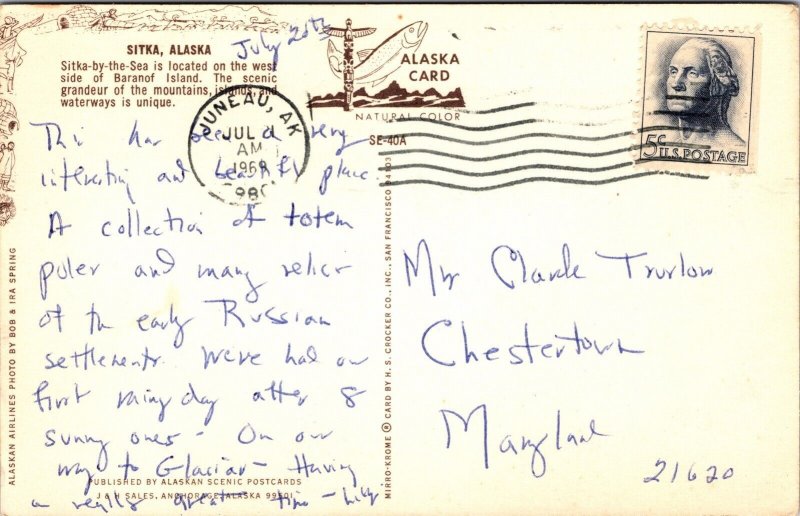 SITKA, ALASKA
Sitka-by-the-Sea is located on the west
side of Baranof Island. The scenic
grandeur of the mountains, islands, and
waterways is unique.
July 20th
ALASKA
CARD
NATURAL COLOR
SE-40A
JUNEAU, AK
JUL
AM
1968
5c U.S. POSTAGE
This has been a very
interesting and beautiful place.
A collection of totem
poles and many relics
of the early Russian
settlements. We've had our
first rainy day after 8
sunny ones - On our
way to Glacier - Having
a really great time -
Clarke Trurlow
Chestertown
Maryland
21620
PUBLISHED BY ALASKAN SCENIC POSTCARDS
J & H SALES, ANCHORAGE, ALASKA 99501
ALASKAN AIRLINES PHOTO BY BOB & IRA SPRING
MIRRO-KROME ® CARD BY H. S. CROCKER CO., INC., SAN FRANCISCO 94103